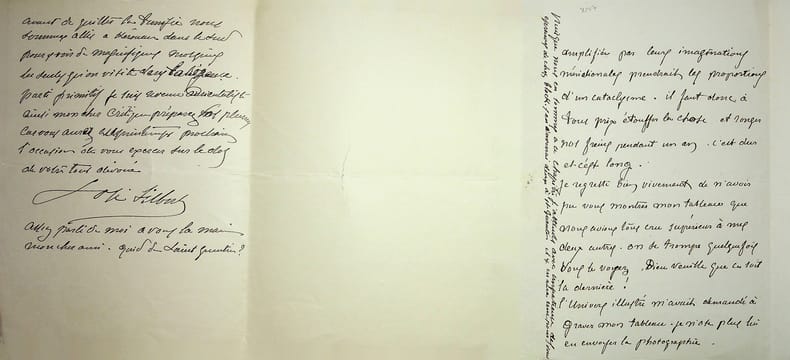 avant de quitter la Tunisie nous
sommes allés a dans le sud
pour voir de magnifiques mosquées
les seules qu'on visite dans la régence.
parti primitif je suis revenu orientaliste
ainsi mon cher critique préparez vos plumes
car vous aurez au printemps prochain
l'occasion de vous exercer sur le dos
de votre tout dévoué
assez parlé de moi a vous la main
mon cher ami. quid de Saint Quentin?
amplifiée par leurs imaginations
méridionales prendrait les proportions
d'un cataclysme. il faut donc à
tous prix étouffer la chose et ronger
nos freins pendant un an. c'est dur
et c'est long.
Je regrette bien vivement de n'avoir
pu vous montrer mon tableau que
nous avions tous cru supérieur à mes
deux autres. on se trompe quelquefois
vous le voyez. Dieu veuille que ce soit
la dernière !
l'Univers illustré m'avait demandé à
graver mon tableau. Je n'ose plus lui
en envoyer la photographie.
Puisque nous en sommes à ce chapitre j'attends avec impatience des
épreuves de chez j'en donnerai deux à St Quentin et